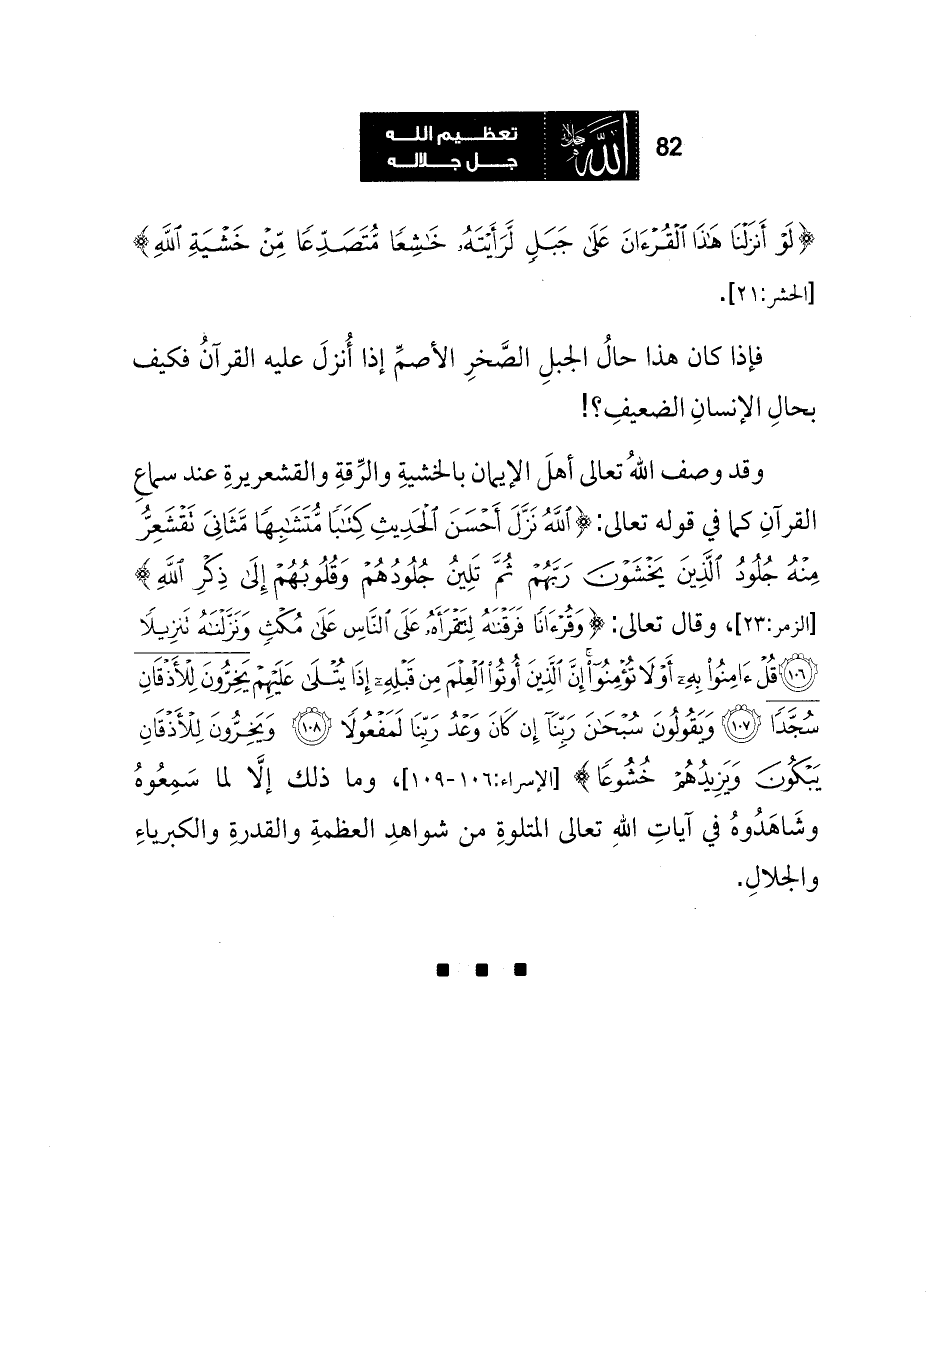 82
تعظيم الله
جل جلاله
الله جل جلاله
﴿لَوْ أَنزَلْنَا هَٰذَا ٱلْقُرْءَانَ عَلَىٰ جَبَلٍ لَّرَأَيْتَهُۥ خَٰشِعًا مُّتَصَدِّعًا مِّنْ خَشْيَةِ ٱللَّهِ﴾
[الحشر:٢١].
فإذا كان هذا حالُ الجبلِ الصَّخرِ الأصمِّ إذا أُنزلَ عليه القرآنُ فكيف
بحالِ الإنسانِ الضعيفِ؟!
وقد وصف اللهُ تعالى أهلَ الإيمان بالخشيةِ والرِّقةِ والقشعريرةِ عند سماعِ
القرآنِ كما في قوله تعالى: ﴿ٱللَّهُ نَزَّلَ أَحْسَنَ ٱلْحَدِيثِ كِتَٰبًا مُّتَشَٰبِهًا مَّثَانِىَ تَقْشَعِرُّ
مِنْهُ جُلُودُ ٱلَّذِينَ يَخْشَوْنَ رَبَّهُمْ ثُمَّ تَلِينُ جُلُودُهُمْ وَقُلُوبُهُمْ إِلَىٰ ذِكْرِ ٱللَّهِ﴾
[الزمر:٢٣]، وقال تعالى: ﴿وَقُرْءَانًا فَرَقْنَٰهُ لِتَقْرَأَهُۥ عَلَى ٱلنَّاسِ عَلَىٰ مُكْثٍ وَنَزَّلْنَٰهُ تَنزِيلًا
١٠٦ قُلْ ءَامِنُوا۟ بِهِۦٓ أَوْ لَا تُؤْمِنُوٓا۟ ۚ إِنَّ ٱلَّذِينَ أُوتُوا۟ ٱلْعِلْمَ مِن قَبْلِهِۦٓ إِذَا يُتْلَىٰ عَلَيْهِمْ يَخِرُّونَ لِلْأَذْقَانِ
سُجَّدًا ١٠٧ وَيَقُولُونَ سُبْحَٰنَ رَبِّنَآ إِن كَانَ وَعْدُ رَبِّنَا لَمَفْعُولًا ١٠٨ وَيَخِرُّونَ لِلْأَذْقَانِ
يَبْكُونَ وَيَزِيدُهُمْ خُشُوعًا﴾ [الإسراء:١٠٦-١٠٩]، وما ذلك إلَّا لما سَمِعُوهُ
وشَاهَدُوهُ في آياتِ اللهِ تعالى المتلوةِ من شواهدِ العظمةِ والقدرةِ والكبرياءِ
والجلالِ.